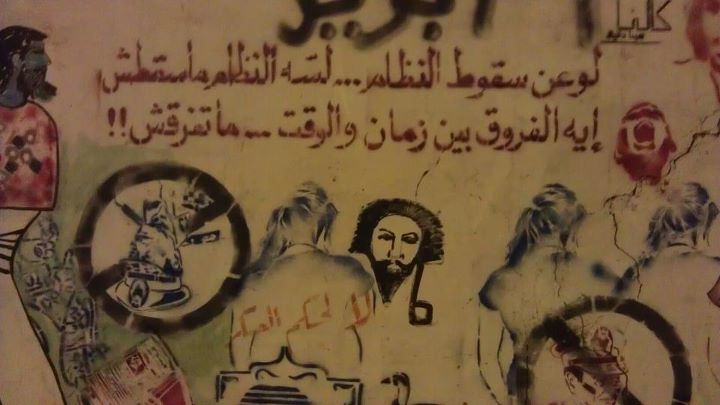 كلنا
لو عن سقوط النظام... لسّه النظام ماسقطش
إيه الفروق بين زمان والوقت -- ماتفرقش!!
لا لحكم العسكر